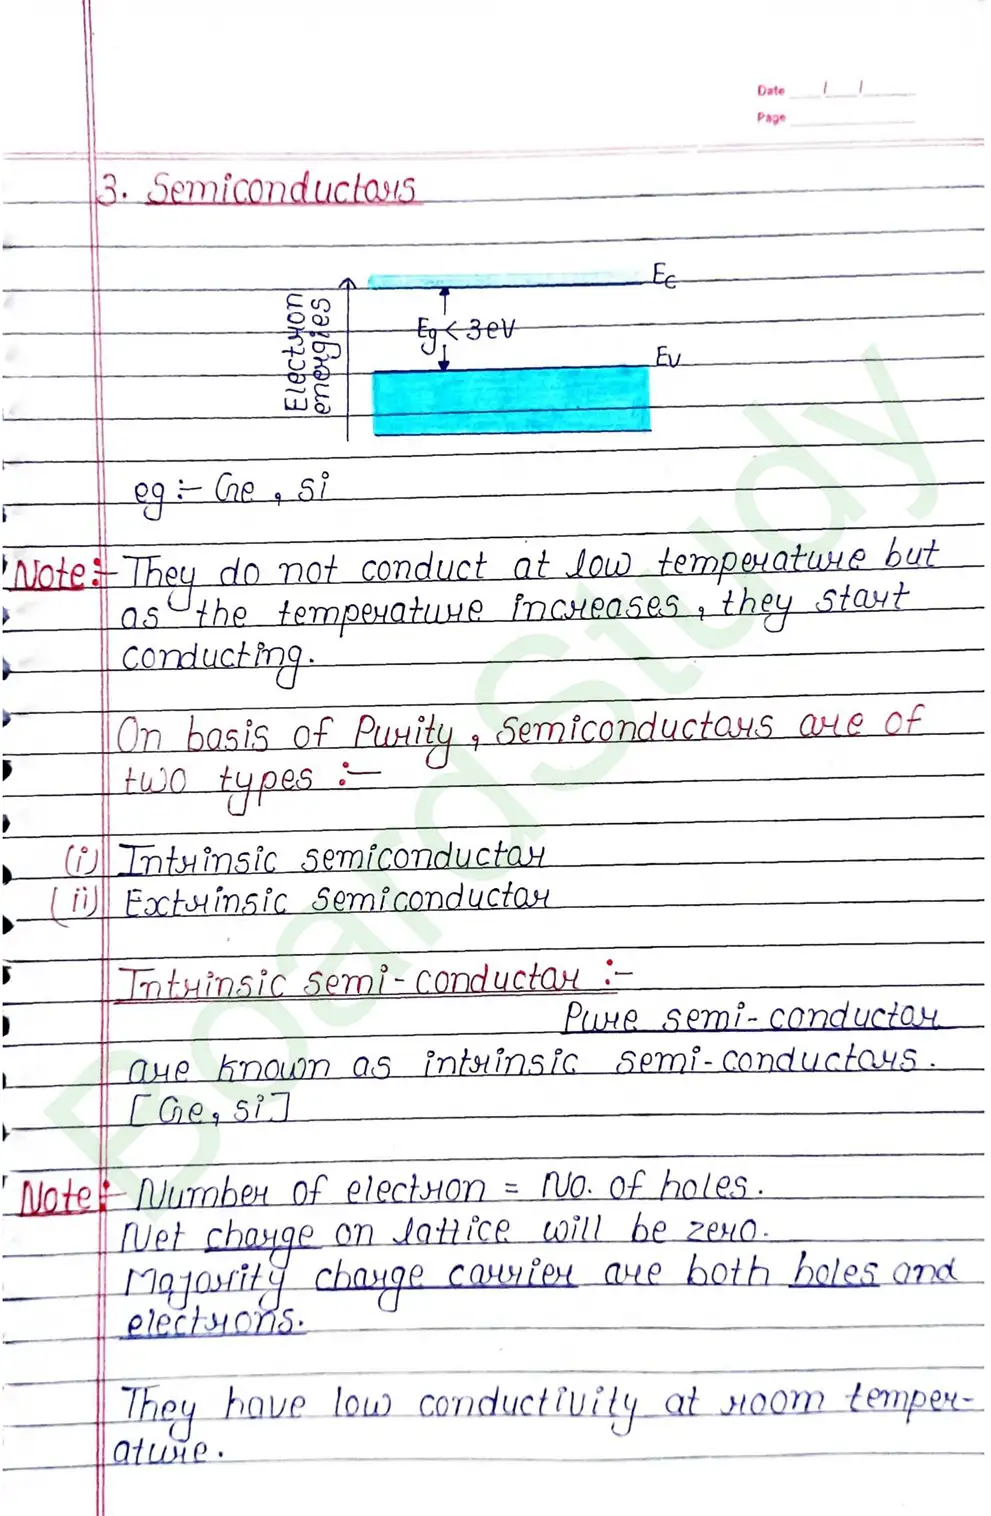 Date / /
Page
3. Semiconductors
Ec
Electron energies
Eg < 3eV
Ev
eg :- Ge, si
Note:- They do not conduct at low temperature but
as the temperature increases, they start
conducting.
On basis of Purity, Semiconductors are of
two types :-
(i) Intrinsic semiconductor
(ii) Extrinsic Semiconductor
Intrinsic semi-conductor :-
Pure semi-conductor
are known as intrinsic semi-conductors.
[Ge, si]
Note:- Number of electron = No. of holes.
Net charge on lattice will be zero.
Majority charge carrier are both holes and
electrons.
They have low conductivity at room temper-
ature.
BoardStudy